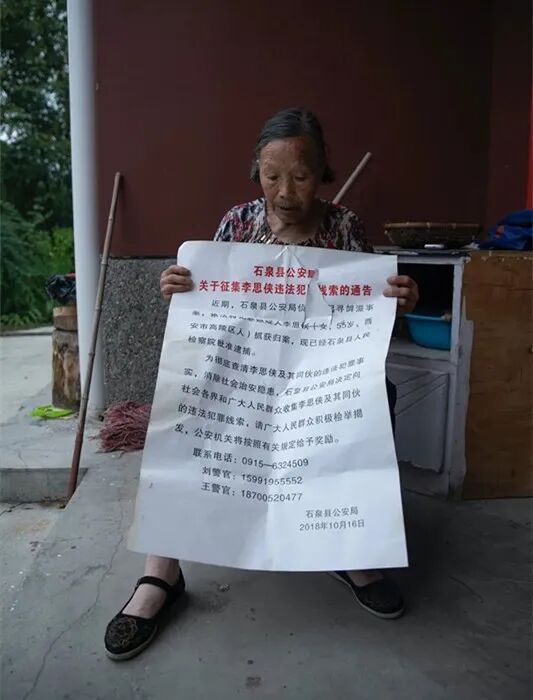 石泉县公安局
关于征集李思侠违法犯罪线索的通告
近期，石泉县公安局侦 寻衅滋事
案， 李思侠（女，55岁，西
安市高陵区人）抓获归案，现已经石泉县人民
检察院批准逮捕。
为彻底查清李思侠及其同伙的违法犯罪事
实，消除社会治安隐患，石泉县公安局决定向
社会各界和广大人民群众收集李思侠及其同伙
的违法犯罪线索，请广大人民群众积极检举揭
发，公安机关将按照有关规定给予奖励。
联系电话：0915—6324509
刘警官：15991955552
王警官：18700520477
石泉县公安局
2018年10月16日